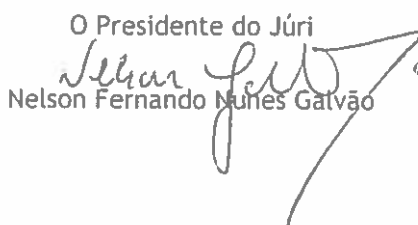 O Presidente do Júri
Nelson Fernando Nunes Galvão